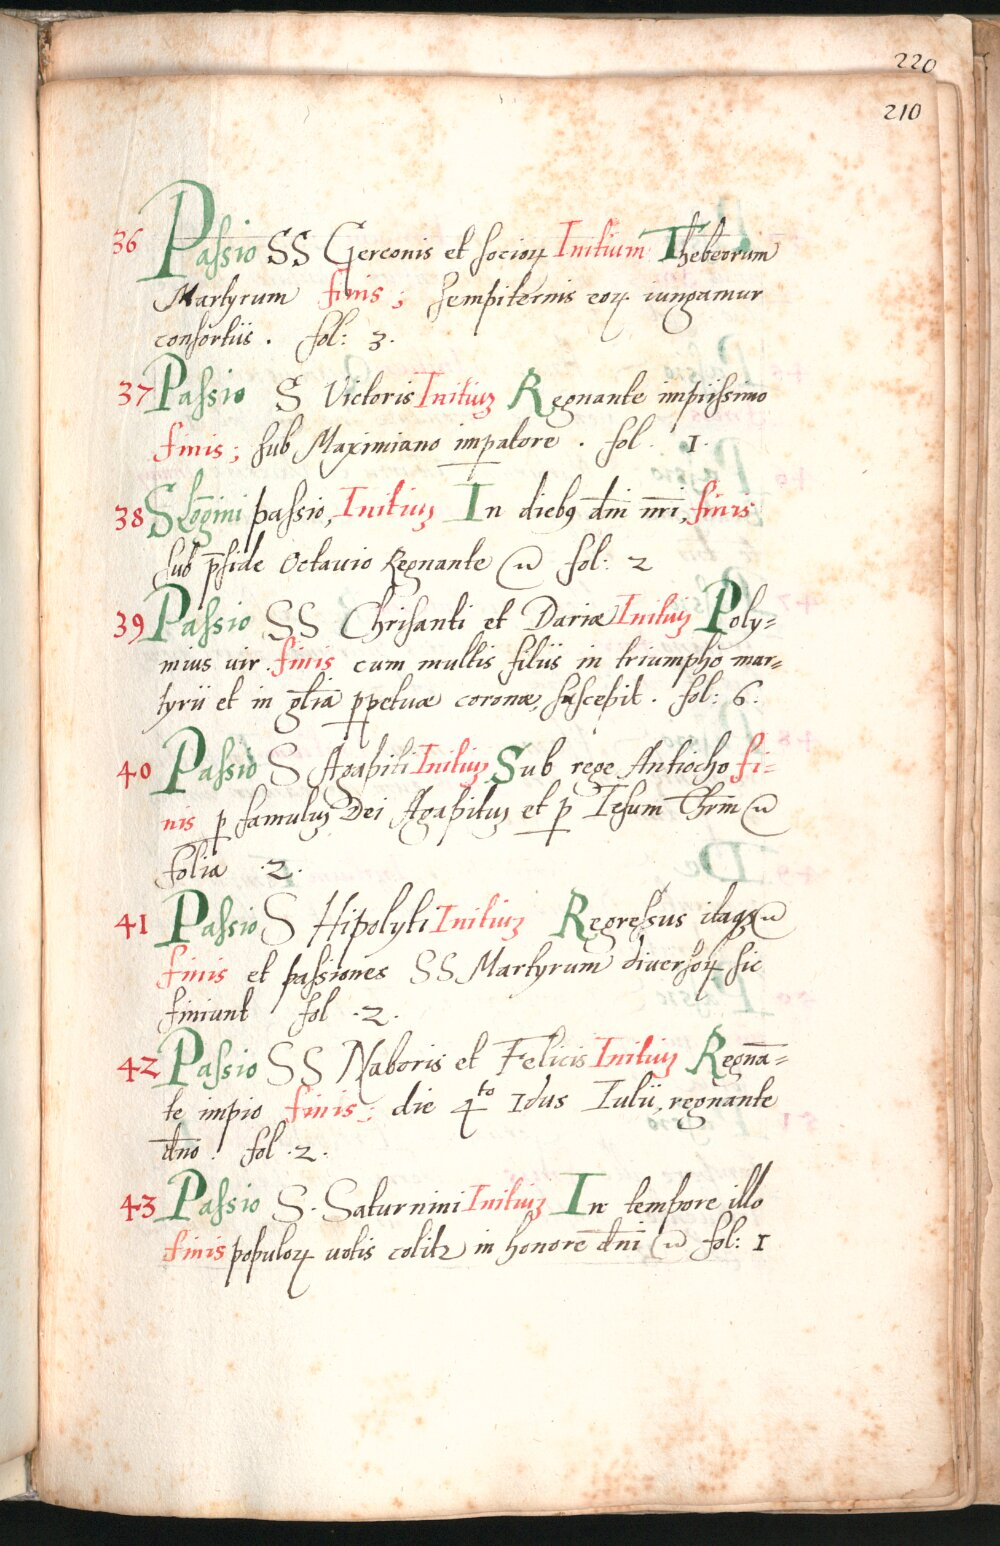 220
210
36 Passio SS Gerconis et socioꝝ Initium Thebeorum
Martyrum finis; sempiternis eoꝝ iungamur
consortiis. fol: 3.
37 Passio S Victoris Initiuꝫ Regnante impiissimo
finis; sub Maximiano imꝑatore. fol. 1.
38 S Lōgini passio, Initiuꝫ In diebꝰ dn̄i nr̄i, finis
sub p̄side Octauio Regnante fol: 2
39 Passio SS Chrisanti et Dariæ Initiuꝫ Poly=
mius uir. finis cum multis filiis in triumpho mar=
tyrii et in gl̄ia ꝑpetuæ coronæ, suscepit. fol: 6.
40 Passio S Agapiti Initiuꝫ Sub rege Antiocho fi=
nis ꝑ famuluꝫ Dei Agapituꝫ et ꝑ Iesum Chr̄m
folia .2.
41 Passio S Hipolyti Initiuꝫ Regressus itaqꝫ
finis et passiones SS Martyrum diuersoꝝ sic
finiunt fol .2.
42 Passio SS Naboris et Felicis Initiuꝫ Regnā=
te impio finis; die 4to Idus Iulii, regnante
dn̄o. fol .2.
43 Passio S. Saturnini Initiuꝫ In tempore illo
finis populoꝝ uotis colitꝛ in honore dn̄i fol: 1